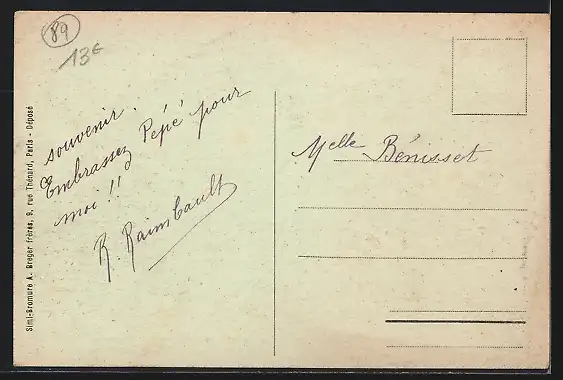 89
13€
souvenir.
Embrassez Pépé pour
moi !!
R. Raimbault
Melle Bénisset
Simi-Bromure A. Breger frères, 9, rue Thénard, Paris - Déposé